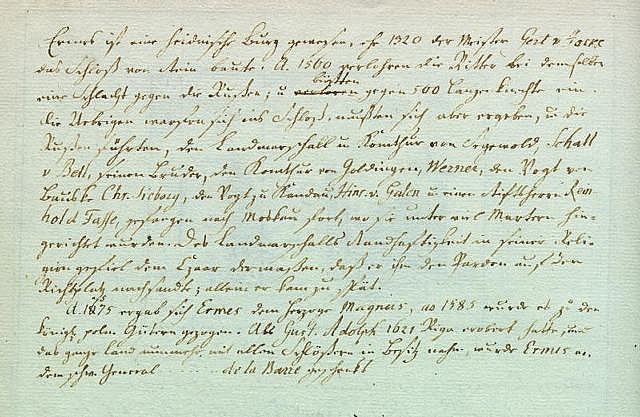 Ermes ist eine heidnische Burg gewesen, ehe 1320 der Meister Gert v Jocke
das Schloß von Stein baute. A. 1560 verlohren die Ritter bei demselben
eine Schlacht gegen die Russen, u büßten gegen 500 Lanzenknechte ein.
Die Uebrigen warfen sich ins Schloß, mußten sich aber ergeben, u die
Russen führten, den Landmarschall u Komthur von Segewold, Schall
v Bell, seinen Bruder, den Komthur von Goldingen, Werner, den Vogt von
Bauske Chr. Siebory, den Vogt zu Kandau, Hinr. v. Galen u einen Rittsherrn Rein
hold Tasse, gefangen nach Moskau fort, wo sie unter viel Martern hin-
gerichtet wurden. Des Landmarschalls Standhaftigkeit in seiner Reli-
gion gefiel dem Czaar dermaßen, daß er ihm den Pardon auf den
Richtplatz nachsandte; allein er kam zu spät.
A. 1575 ergab sich Ermes dem Herzoge Magnus, ao 1585 wurde es zu den
königl. poln Gütern gezogen. Als Gust. Adolph 1621 Riga erobert hatte, u
das ganze Land nunmehr, mit allen Schlößern in Besitz nahm, wurde Ermes an
dem schw. General ...... de la Barre geschenkt